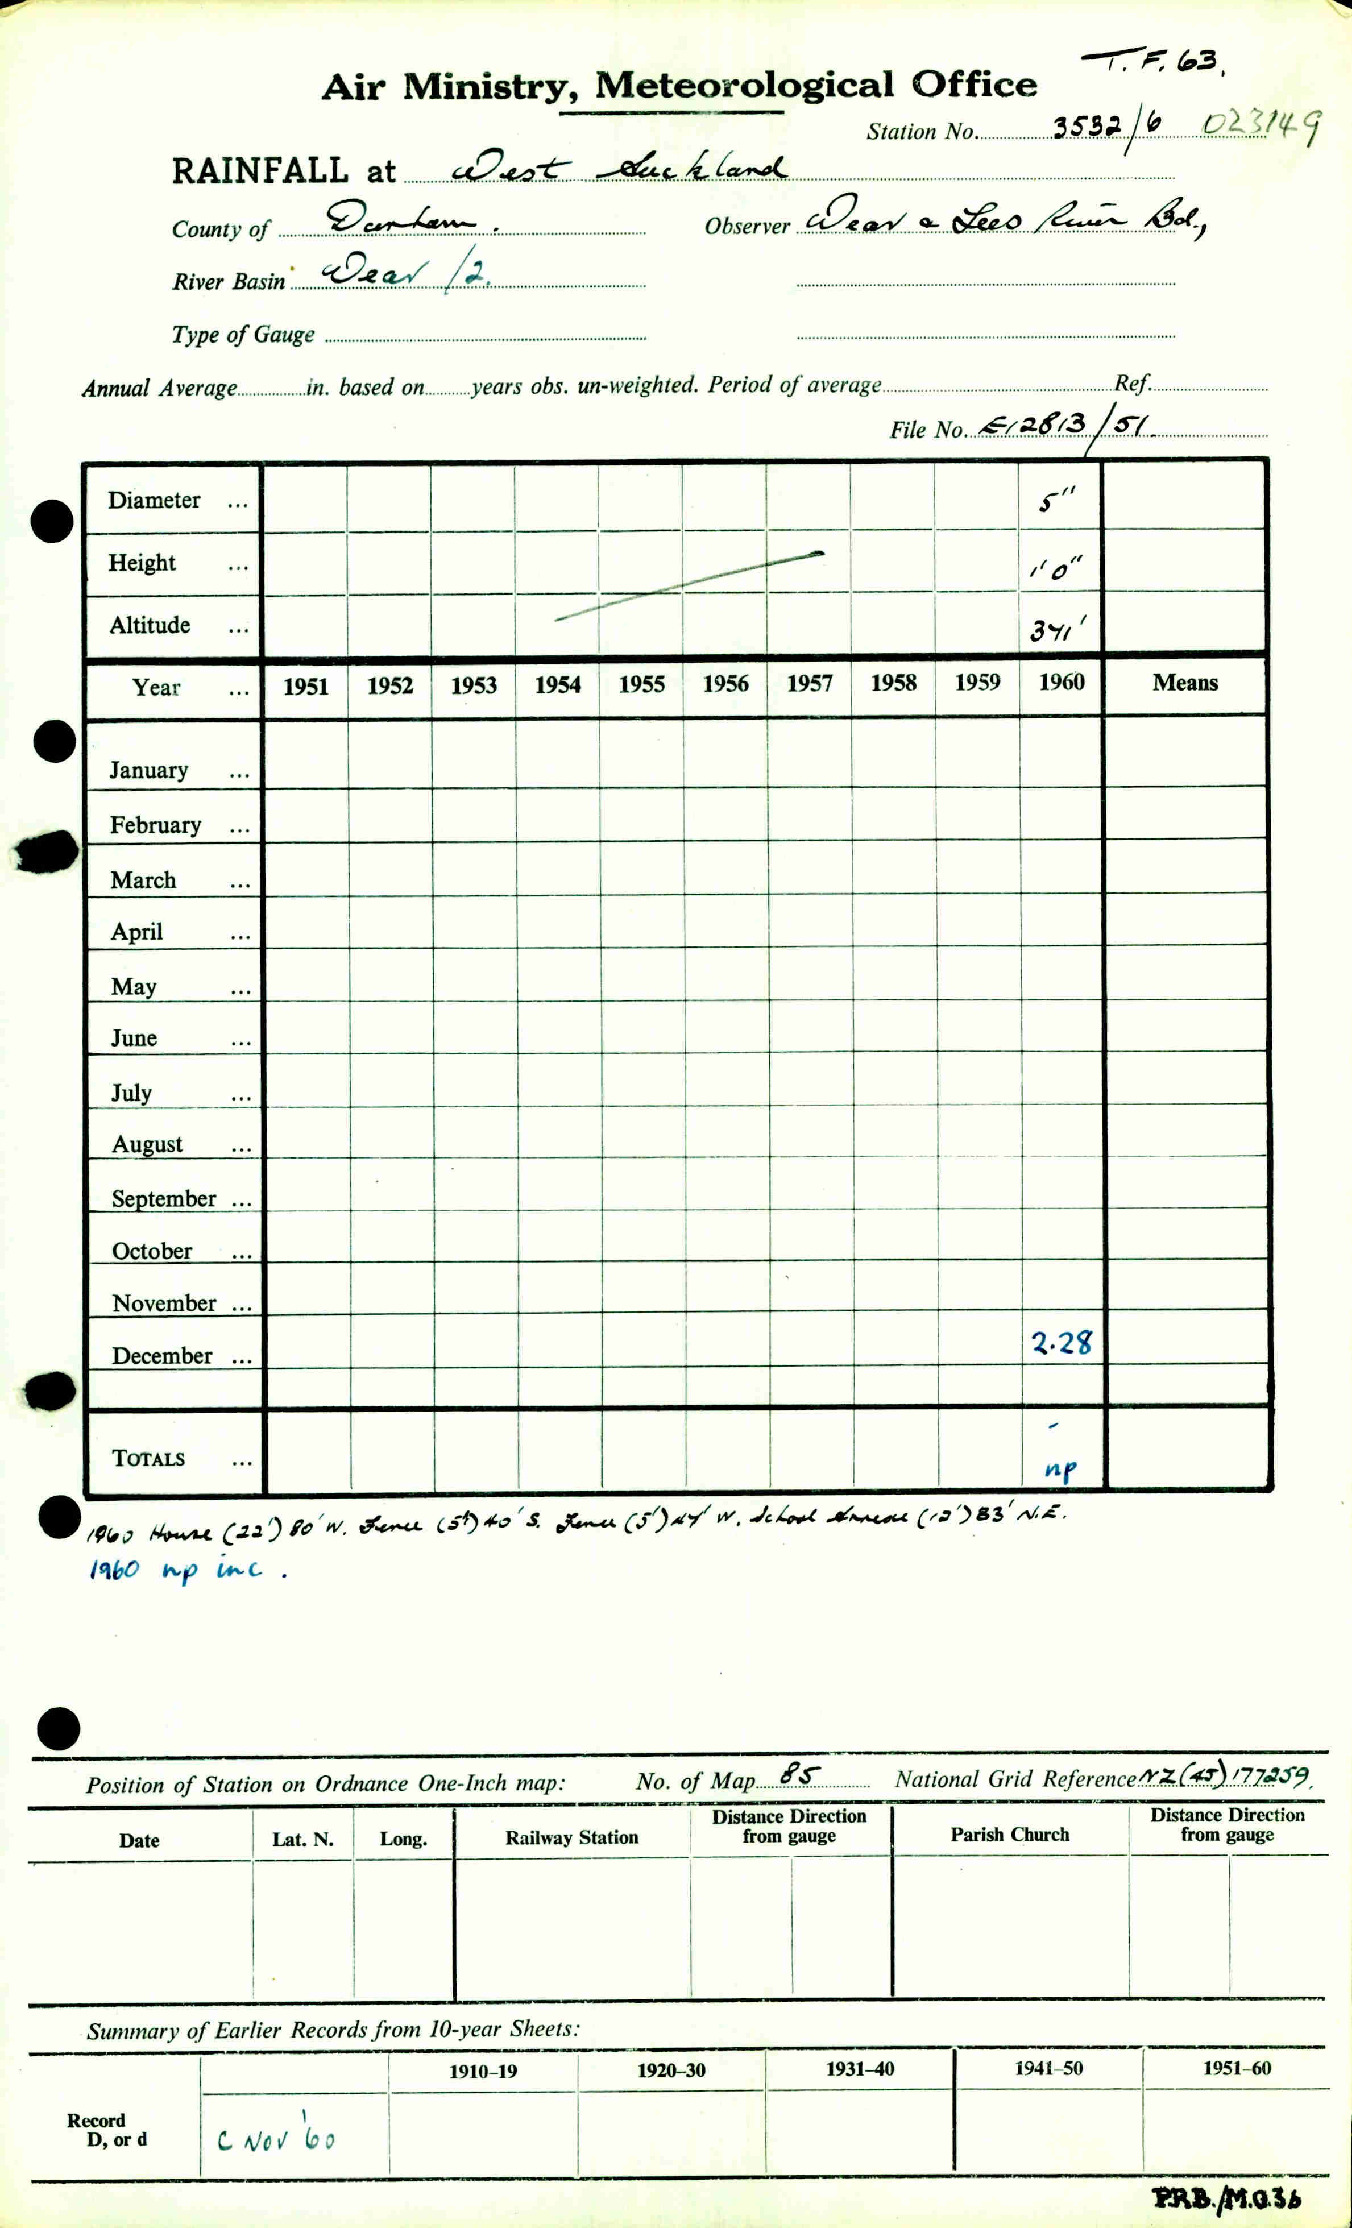 T. F. 63.
Air Ministry, Meteorological Office
Station No. 3532/6 023149
RAINFALL at West Auckland
County of Durham. Observer Wear & Tees River Bd.,
River Basin Wear /2.
Type of Gauge
Annual Average in. based on years obs. un-weighted. Period of average Ref.
File No. E12813/51.
Diameter ... 5"
Height ... 1'0"
Altitude ... 341'
Year ... 1951 1952 1953 1954 1955 1956 1957 1958 1959 1960 Means
January ...
February ...
March ...
April ...
May ...
June ...
July ...
August ...
September ...
October ...
November ...
December ... 2.28
-
TOTALS ... np
1960 House (22') 80' W. Fence (5') 40' S. Fence (5') 44' W. School Annexe (12') 83' N.E.
1960 np inc.
Position of Station on Ordnance One-Inch map: No. of Map 85 National Grid Reference NZ(45)177259.
Date Lat. N. Long. Railway Station Distance Direction from gauge Parish Church Distance Direction from gauge
Summary of Earlier Records from 10-year Sheets:
1910–19 1920–30 1931–40 1941–50 1951–60
Record
D, or d C Nov '60
P.R.B./M.O.36